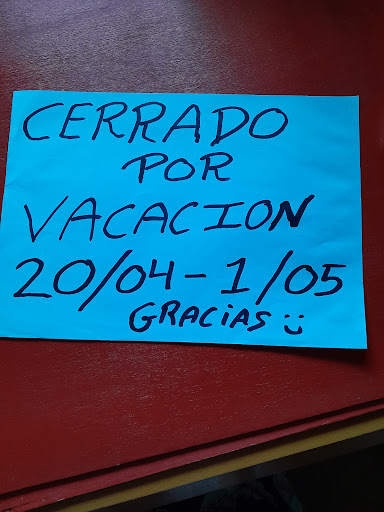 CERRADO
POR
VACACION
20/04-1/05
GRACIAS :)